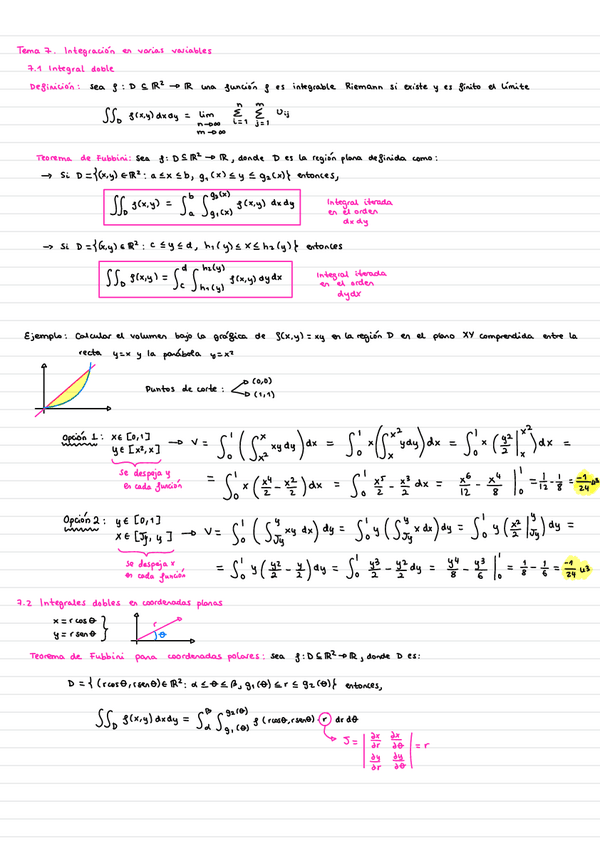 Tema 7. Integración en varias variables
7.1 Integral doble
Definición: sea f: D ⊆ ℝ² → ℝ una función f es integrable Riemann si existe y es finito el límite
∬_D f(x,y) dx dy = lim_{n→∞, m→∞} Σ_{i=1}^{n} Σ_{j=1}^{m} U_ij
Teorema de Fubbini: sea f: D ⊆ ℝ² → ℝ, donde D es la región plana definida como:
→ Si D = {(x,y) ∈ ℝ²: a ≤ x ≤ b, g₁(x) ≤ y ≤ g₂(x)} entonces,
∬_D f(x,y) = ∫_a^b ∫_{g₁(x)}^{g₂(x)} f(x,y) dx dy
Integral iterada
en el orden
dx dy
→ Si D = {(x,y) ∈ ℝ²: c ≤ y ≤ d, h₁(y) ≤ x ≤ h₂(y)} entonces
∬_D f(x,y) = ∫_c^d ∫_{h₁(y)}^{h₂(y)} f(x,y) dy dx
Integral iterada
en el orden
dy dx
Ejemplo: Calcular el volumen bajo la gráfica de f(x,y) = xy en la región D en el plano XY comprendida entre la
recta y=x y la parábola y=x²
Puntos de corte: (0,0)
(1,1)
Opción 1: x ∈ [0,1]
y ∈ [x²,x]
→ V = ∫_0^1 (∫_{x²}^x xy dy) dx = ∫_0^1 x (∫_x^{x²} y dy) dx = ∫_0^1 x (y²/2 |_x^{x²}) dx =
se despeja y
en cada función
= ∫_0^1 x (x⁴/2 - x²/2) dx = ∫_0^1 x⁵/2 - x³/2 dx = x⁶/12 - x⁴/8 |_0^1 = 1/12 - 1/8 = -1/24 u³
Opción 2: y ∈ [0,1]
x ∈ [√y, y]
→ V = ∫_0^1 (∫_{√y}^y xy dx) dy = ∫_0^1 y (∫_{√y}^y x dx) dy = ∫_0^1 y (x²/2 |_{√y}^y) dy =
se despeja x
en cada función
= ∫_0^1 y (y²/2 - y/2) dy = ∫_0^1 y³/2 - y²/2 dy = y⁴/8 - y³/6 |_0^1 = 1/8 - 1/6 = -1/24 u³
7.2 Integrales dobles en coordenadas planas
x = r cos θ
y = r sen θ
r
θ
Teorema de Fubbini para coordenadas polares: sea f: D ⊆ ℝ² → ℝ, donde D es:
D = {(r cos θ, r sen θ) ∈ ℝ²: α ≤ θ ≤ β, g₁(θ) ≤ r ≤ g₂(θ)} entonces,
∬_D f(x,y) dx dy = ∫_α^β ∫_{g₁(θ)}^{g₂(θ)} f(r cos θ, r sen θ) · r dr dθ
J = | ∂x/∂r ∂x/∂θ |
| ∂y/∂r ∂y/∂θ | = r